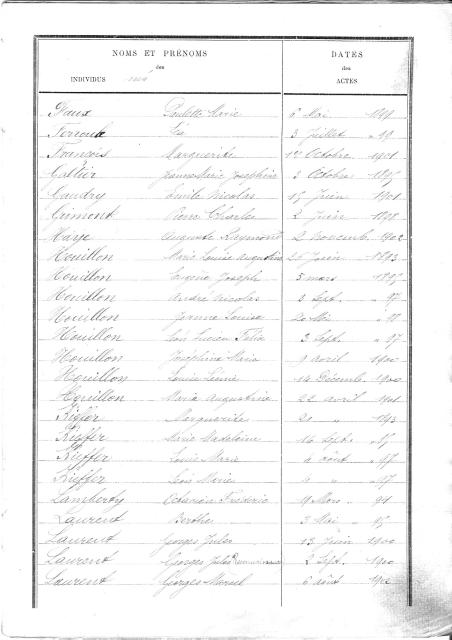 NOMS ET PRÉNOMS DATES
des des
INDIVIDUS nés ACTES
Faux Paulette Marie 6 Mai 1899
Ferroul Léa 3 Juillet " 99
François Marguerite 17 Octobre 1901
Galtier Jeanne Marie Joséphine 3 Octobre 1895
Gaudry Emile Nicolas 15 Juin 1901
Grimont Pierre Charles 2 Juin 1898
Haye Auguste Raymond 2 novemb. 1902
Houillon Marie Louise Augustine 25 Juin 1893
Houillon Eugène Joseph 5 mars 1895
Houillon André Nicolas 3 Sept. " 97
Houillon Jeanne Louise 20 Mai " 98
Houillon Lucien Félix 3 Sept. " 97
Houillon Joséphine Marie 9 avril 1900
Houillon Louise 14 Décemb. 1900
Houillon Maria Augustine 22 avril 1901
Kieffer Marguerite 20 " 1893
Kieffer Marie Madeleine 16 Sept. " 95
Kieffer Louis Marie 4 août " 97
Kieffer Marie 4 " " 97
Lamberty Octavien Fréderic 9 Mars " 91
Laurent Berthe 3 Mai " 95
Laurent Georges Jules 13 Juin 1900
Laurent Georges Jules 2 Sept. 1900
Laurent Georges Marcel 6 août 1902